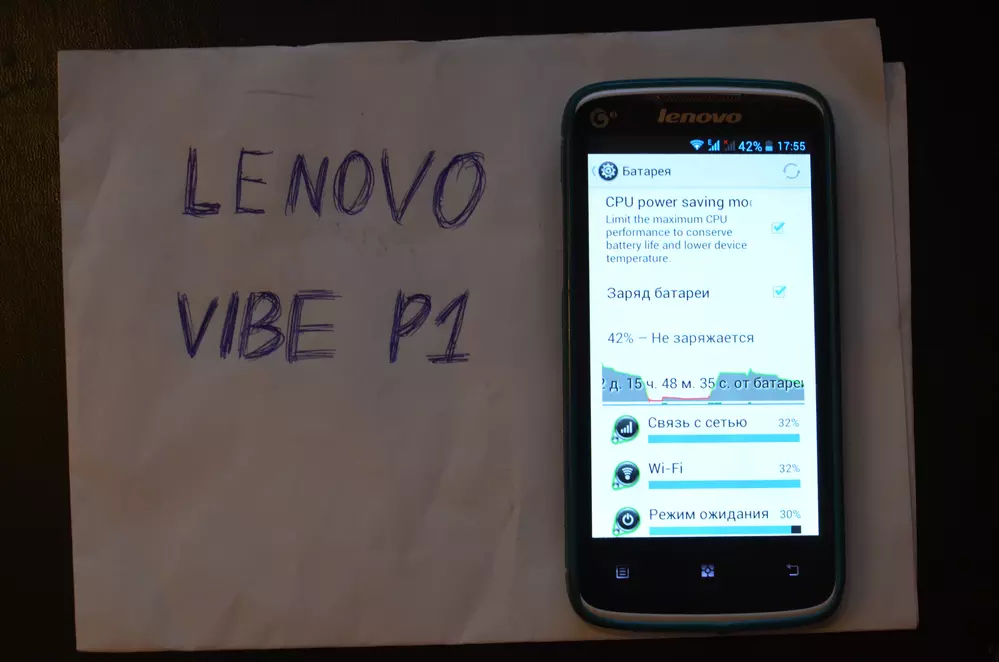 LENOVO
VIBE P1
lenovo
42% 17:55
Батарея
CPU power saving mo
Limit the maximum CPU
performance to conserve
battery life and lower device
temperature.
Заряд батареи
42% – Не заряжается
2 д. 15 ч. 48 м. 35 с. от батареи
Связь с сетью 32%
Wi-Fi 32%
Режим ожидания 30%